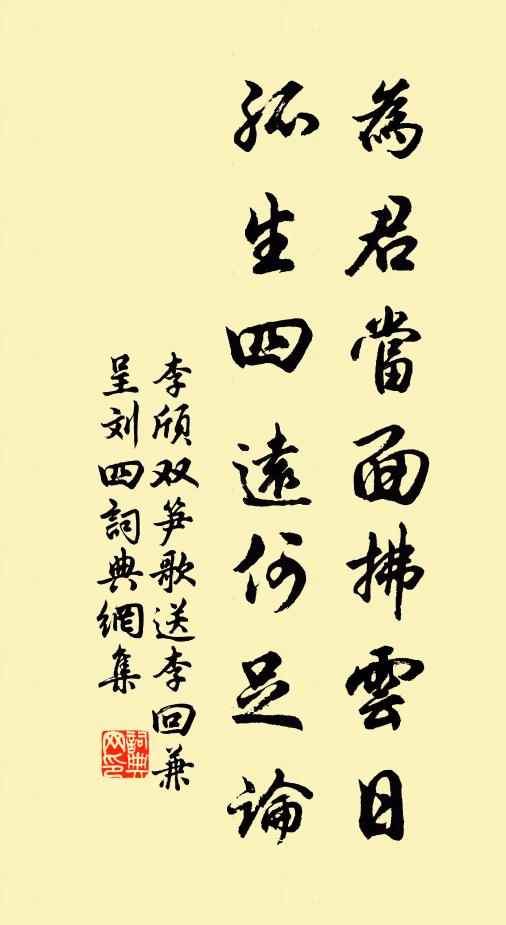 為君當面拂雲日
孤生四遠何足論
李頎双笋歌送李回兼
呈刘四詞典網集
詞典网印